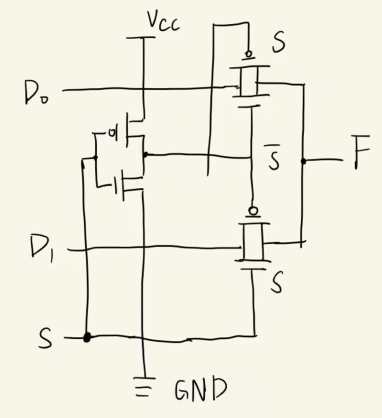 Vcc
S
D₀
S̅
F
D₁
S
S
GND